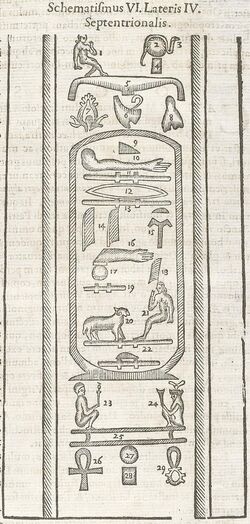 Schematismus VI. Lateris IV.
Septentrionalis.
1
2
3
5
8
9
10
12
13
14
15
16
17
18
19
20
21
22
23
24
25
26
27
28
29